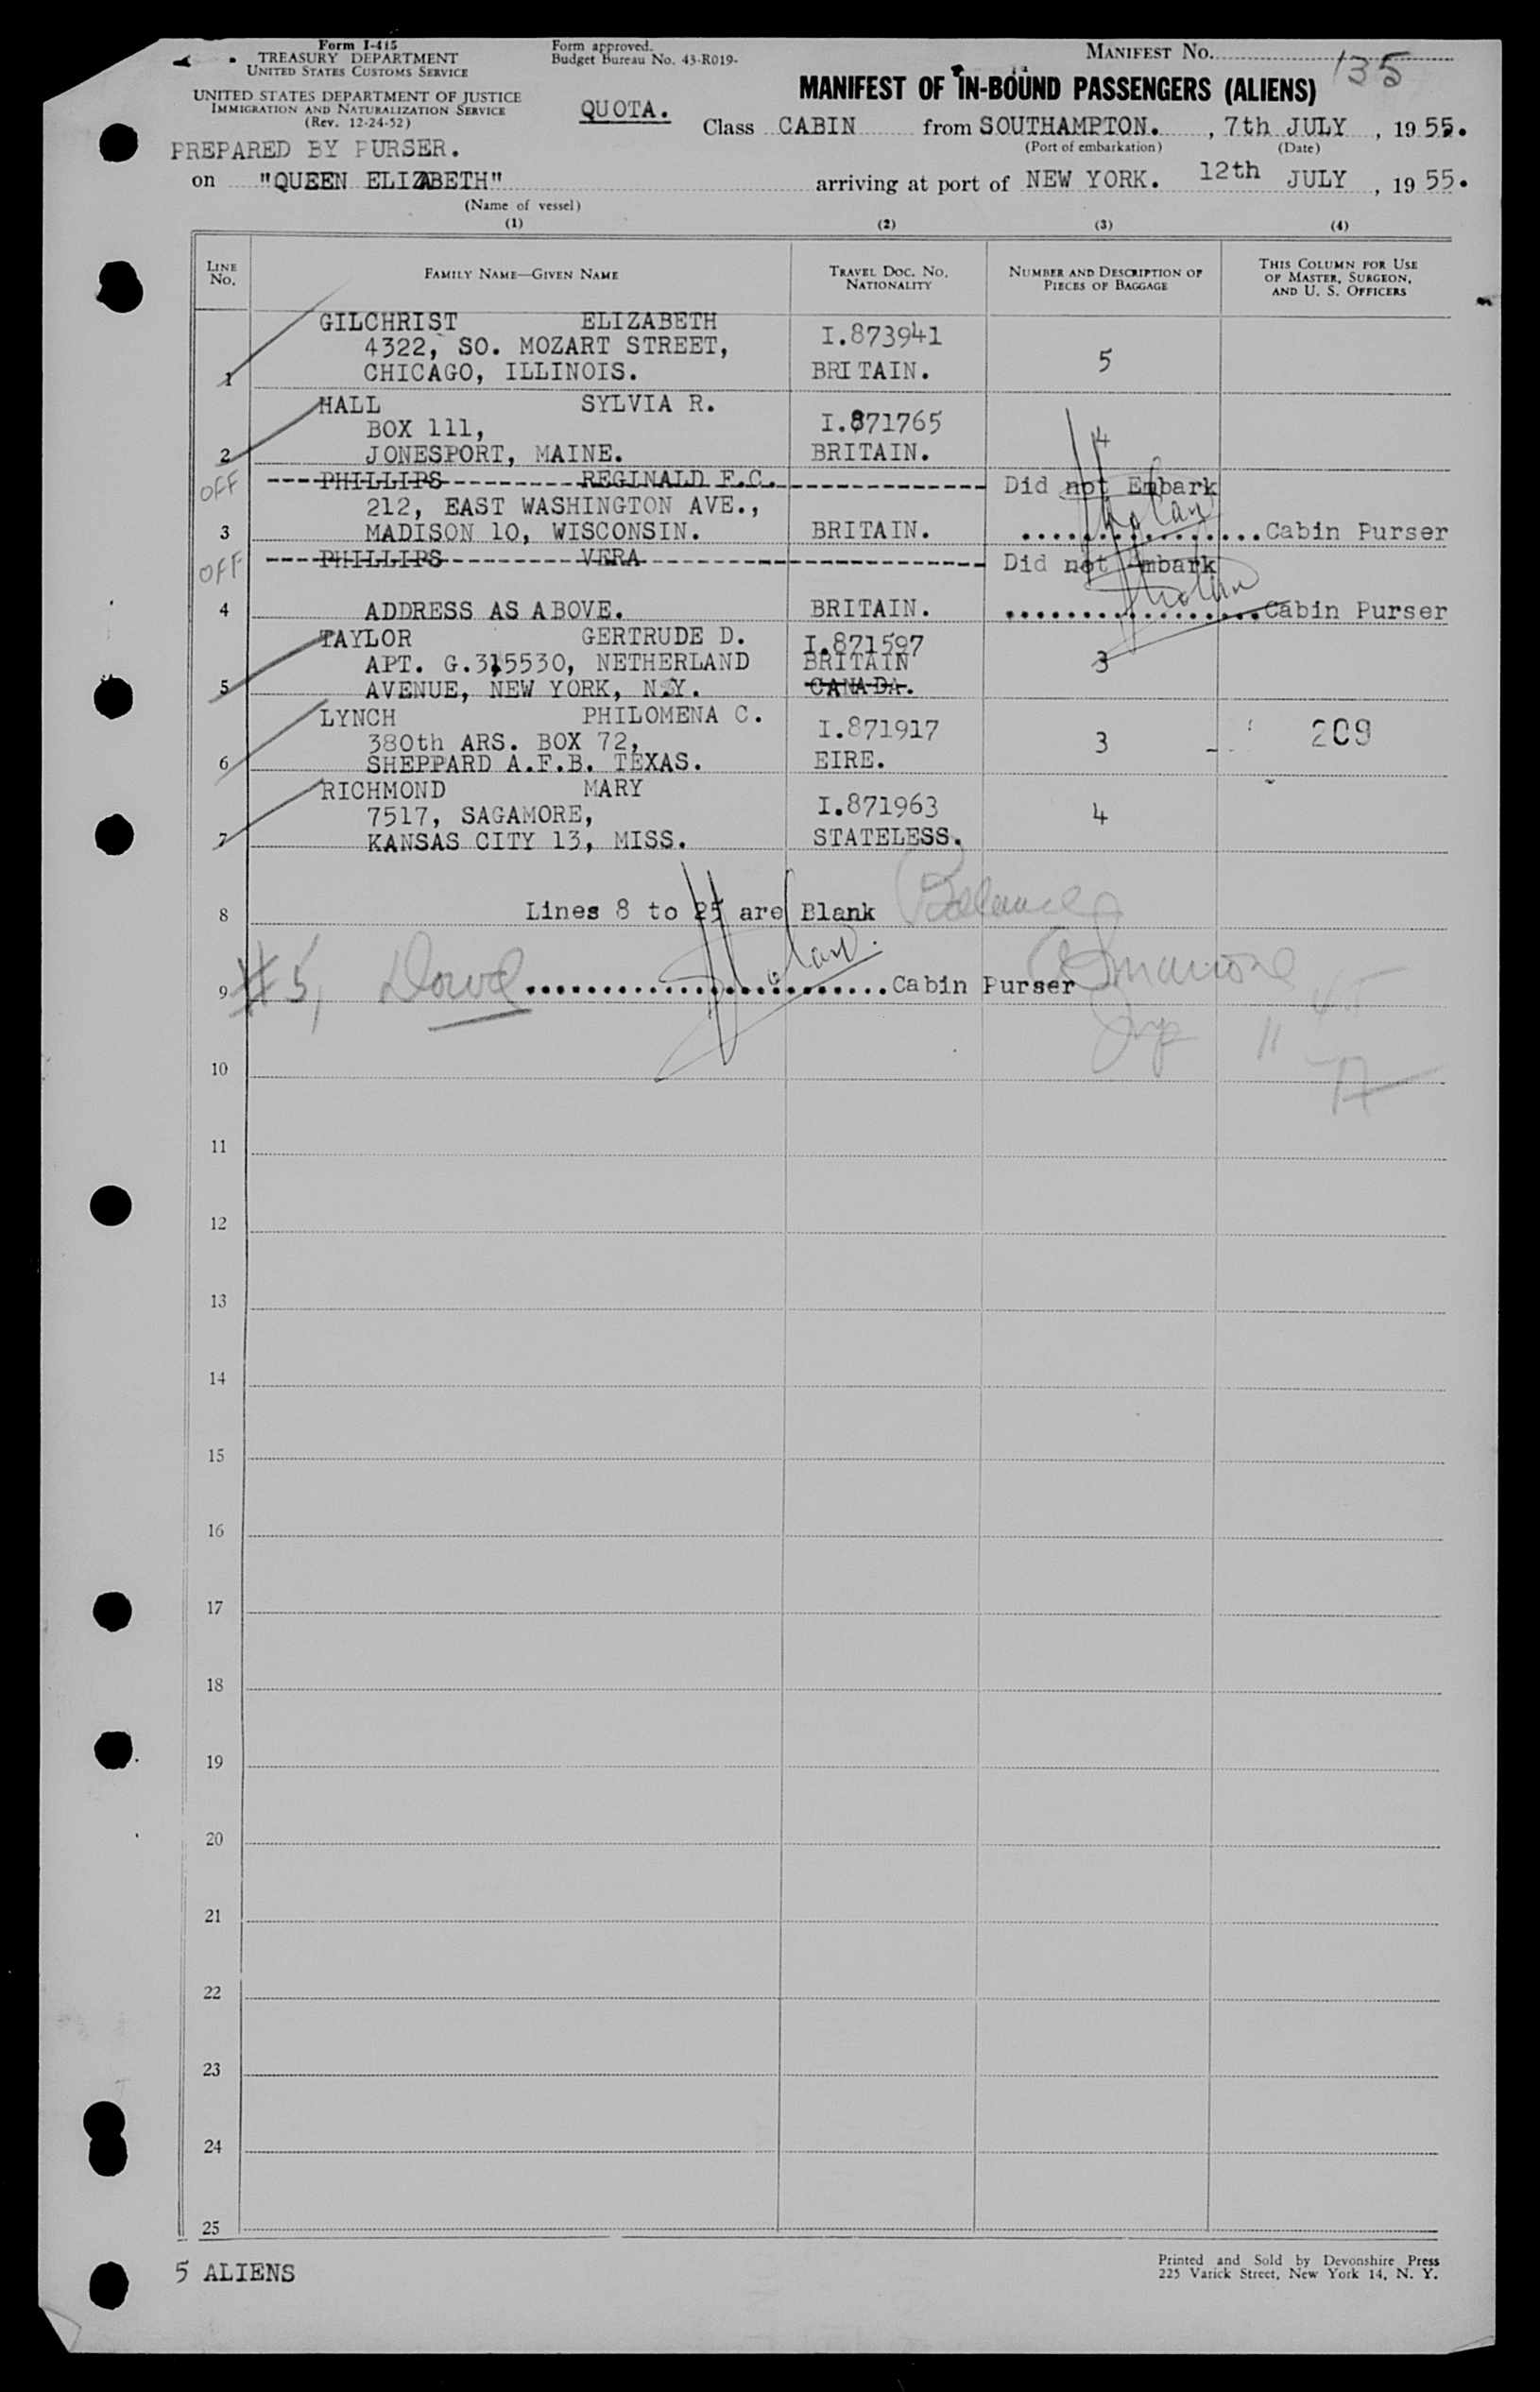 Form I-415
TREASURY DEPARTMENT
UNITED STATES CUSTOMS SERVICE
UNITED STATES DEPARTMENT OF JUSTICE
IMMIGRATION AND NATURALIZATION SERVICE
(Rev. 12-24-52)
PREPARED BY PURSER.
Form approved.
Budget Bureau No. 43-R019-
QUOTA.
MANIFEST No. 135
MANIFEST OF IN-BOUND PASSENGERS (ALIENS)
Class CABIN from SOUTHAMPTON. , 7th JULY , 19 55.
(Port of embarkation) (Date)
on "QUEEN ELIZABETH" arriving at port of NEW YORK. 12th JULY , 19 55.
(Name of vessel)
(1) (2) (3) (4)
LINE No. FAMILY NAME—GIVEN NAME TRAVEL DOC. NO. NATIONALITY NUMBER AND DESCRIPTION OF PIECES OF BAGGAGE THIS COLUMN FOR USE OF MASTER, SURGEON, AND U. S. OFFICERS
GILCHRIST ELIZABETH I.873941
4322, SO. MOZART STREET, 5
1 CHICAGO, ILLINOIS. BRITAIN.
HALL SYLVIA R. I.871765
BOX 111, 4
2 JONESPORT, MAINE. BRITAIN.
OFF ---PHILLIPS---------REGINALD F.C.------------- Did not Embark
212, EAST WASHINGTON AVE.,
3 MADISON 10, WISCONSIN. BRITAIN. ................Cabin Purser
OFF ---PHILLIPS---------VERA---------------------- Did not Embark
4 ADDRESS AS ABOVE. BRITAIN. .................Cabin Purser
TAYLOR GERTRUDE D. I.871597
APT. G.315530, NETHERLAND BRITAIN 3
5 AVENUE, NEW YORK, N.Y. CANADA.
LYNCH PHILOMENA C. I.871917 209
380th ARS. BOX 72, 3
6 SHEPPARD A.F.B. TEXAS. EIRE.
RICHMOND MARY I.871963
7517, SAGAMORE, 4
7 KANSAS CITY 13, MISS. STATELESS.
8 Lines 8 to 25 are Blank
9 #5, ........................Cabin Purser
10
11
12
13
14
15
16
17
18
19
20
21
22
23
24
25
5 ALIENS
Printed and Sold by Devonshire Press
225 Varick Street, New York 14, N. Y.